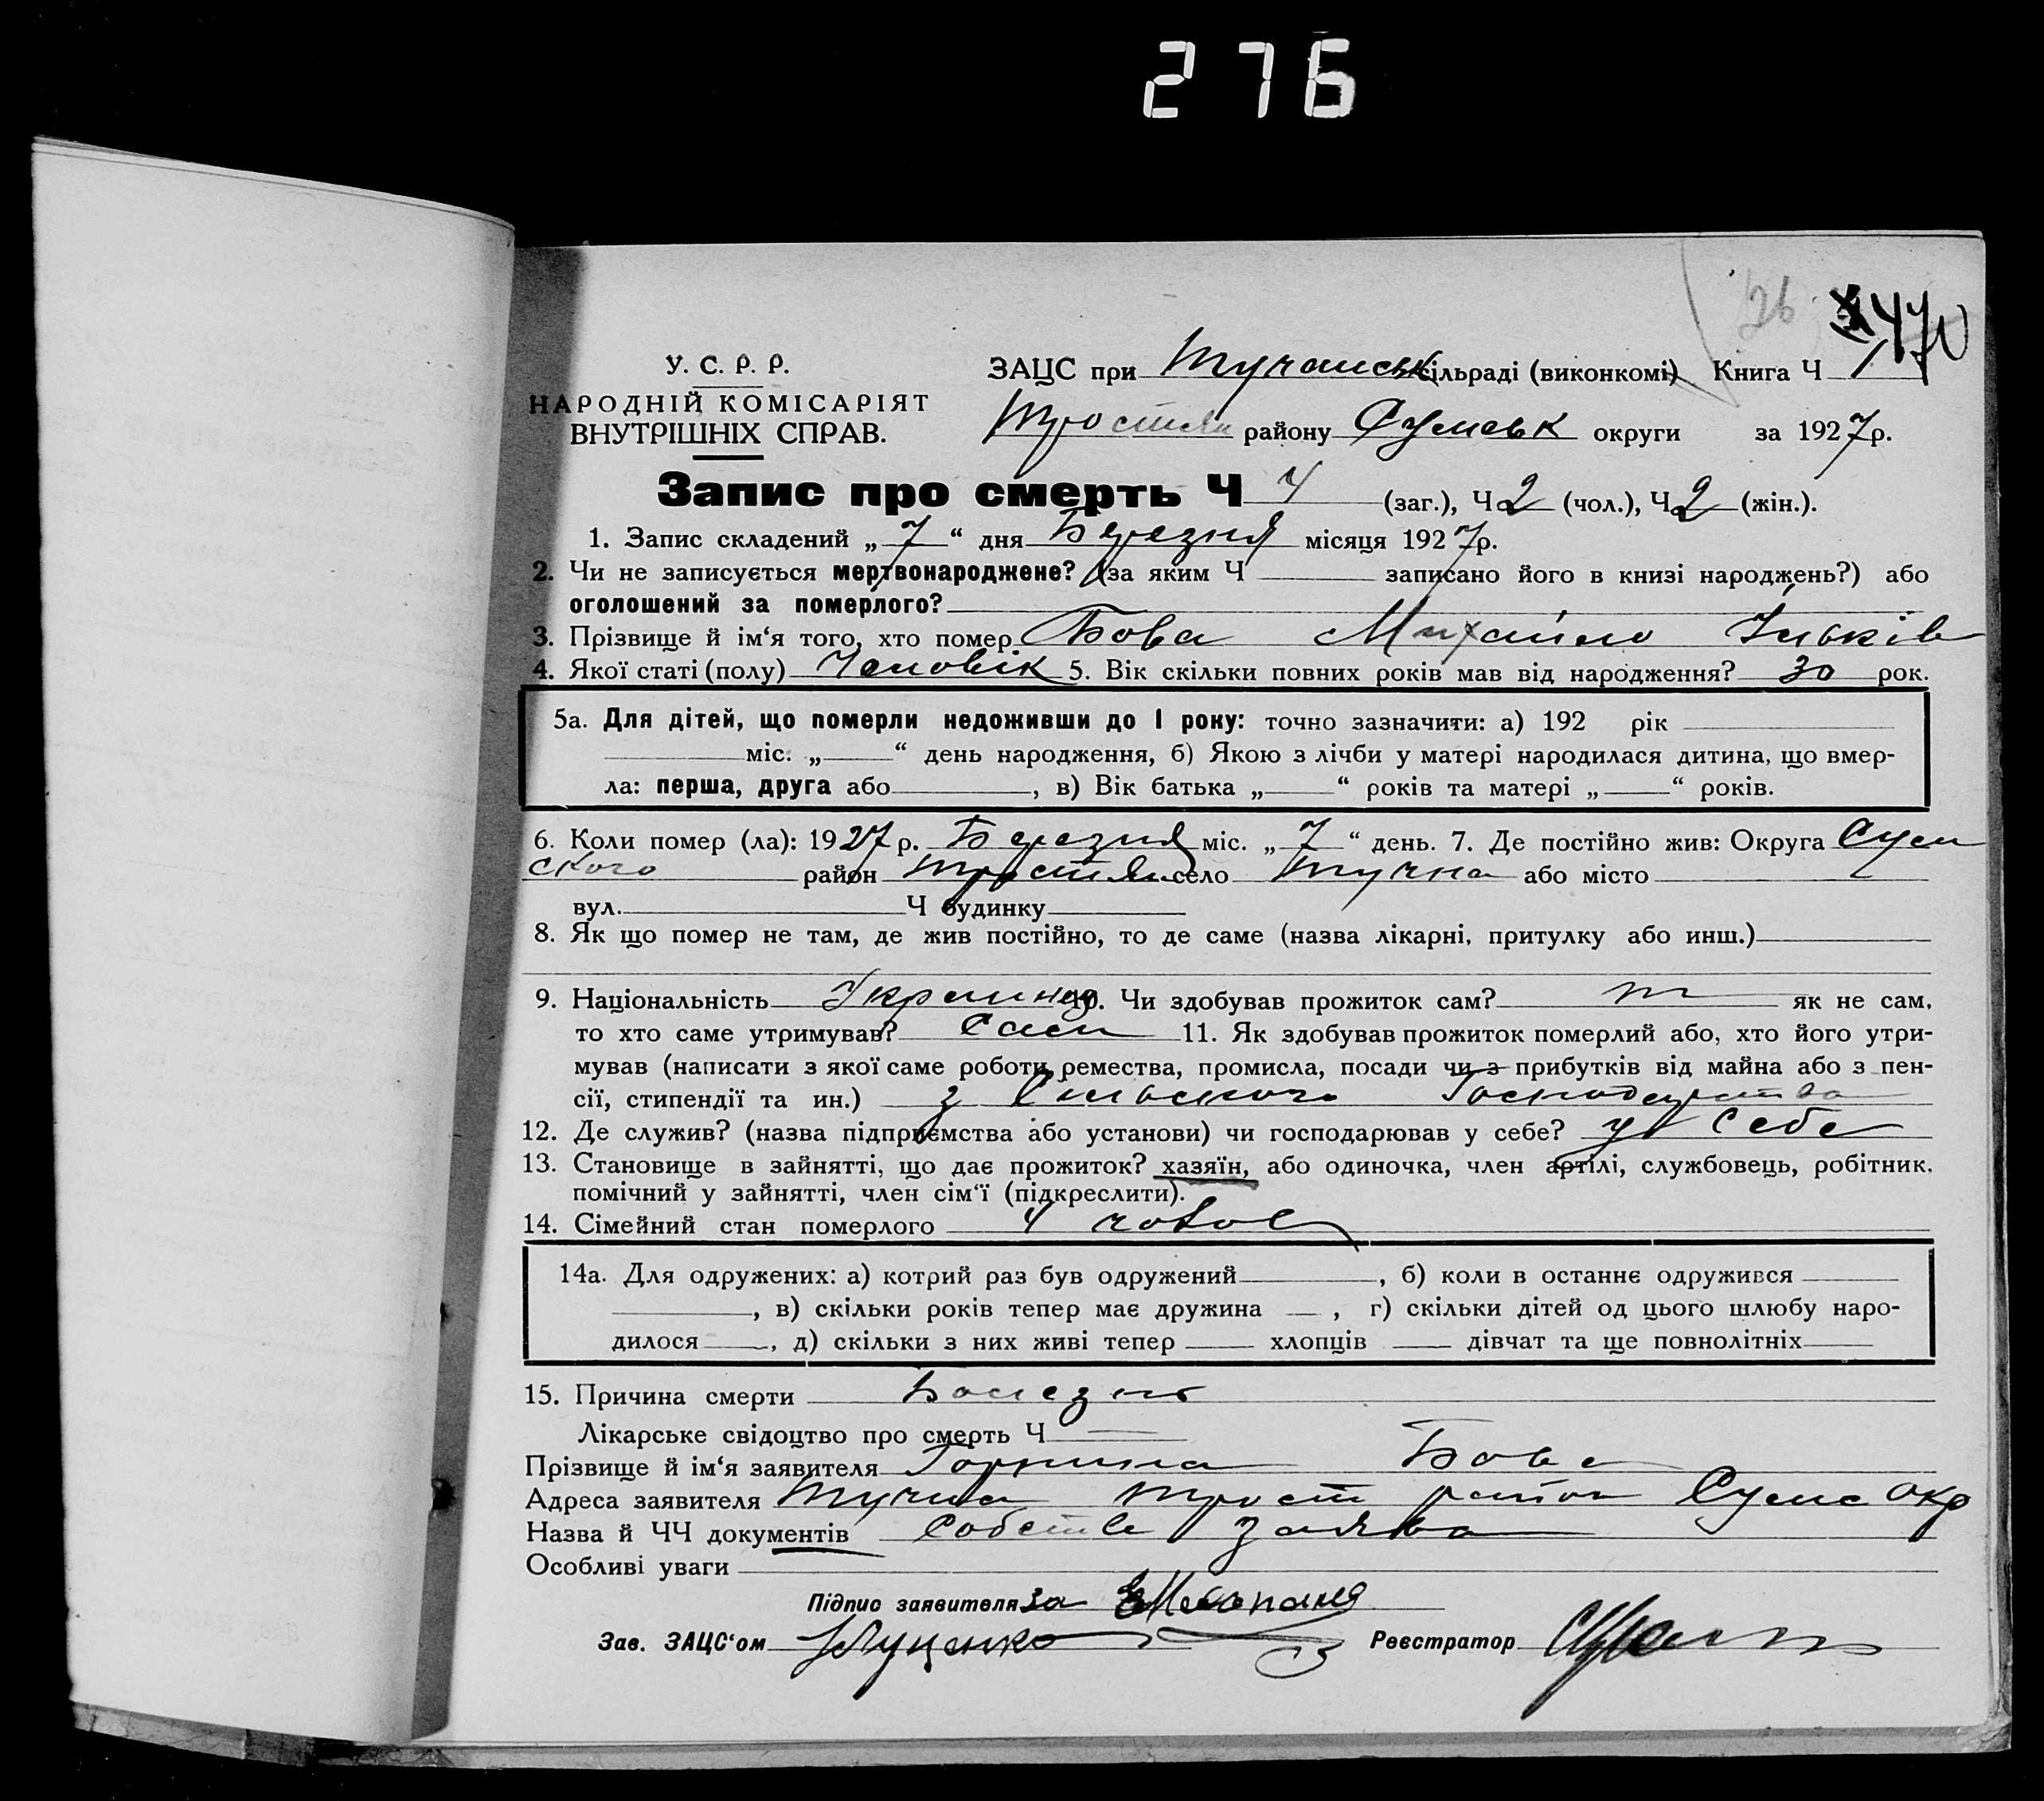 276
26
470
У. С. Р. Р.
НАРОДНІЙ КОМІСАРІЯТ
ВНУТРІШНІХ СПРАВ.
ЗАЦС при Тучанськ сільраді (виконкомі) Книга Ч 1
Тростян району Сумськ округи за 1927р.
Запис про смерть Ч 4 (заг.), Ч 2 (чол.), Ч 2 (жін.).
1. Запис складений „7“ дня Березня місяця 1927р.
2. Чи не записується мертвонароджене? (за яким Ч записано його в книзі народжень?) або
оголошений за померлого?
3. Прізвище й ім‘я того, хто помер Бова Михайло Ільків
4. Якої статі (полу) Чоловік 5. Вік скільки повних років мав від народження? 30 рок.
5а. Для дітей, що померли недоживши до 1 року: точно зазначити: а) 192 рік
міс. „ “ день народження, б) Якою з лічби у матері народилася дитина, що вмер-
ла: перша, друга або , в) Вік батька „ “ років та матері „ “ років.
6. Коли помер (ла): 1927 р. Березня міс. „7“ день. 7. Де постійно жив: Округа Сум
ского район Тростян село Тучна або місто
вул. Ч будинку
8. Як що помер не там, де жив постійно, то де саме (назва лікарні, притулку або инш.)
9. Національність 10. Чи здобував прожиток сам? як не сам,
то хто саме утримував? Сам 11. Як здобував прожиток померлий або, хто його утри-
мував (написати з якої саме роботи, ремества, промисла, посади чи з прибутків від майна або з пен-
сії, стипендії та ин.) з Сільского Господарства
12. Де служив? (назва підприємства або установи) чи господарював у себе? у себе
13. Становище в зайнятті, що дає прожиток? хазяїн, або одиночка, член артілі, службовець, робітник,
помічний у зайнятті, член сім‘ї (підкреслити).
14. Сімейний стан померлого 4 чоловік
14а. Для одружених: а) котрий раз був одружений , б) коли в останнє одружився
, в) скільки років тепер має дружина , г) скільки дітей од цього шлюбу наро-
дилося , д) скільки з них живі тепер хлопців дівчат та ще повнолітніх
15. Причина смерти Болезнь
Лікарське свідоцтво про смерть Ч
Прізвище й ім‘я заявителя Горпина Бова
Адреса заявителя Тучна Трост район Сумс окр
Назва й ЧЧ документів Собстве заява
Особливі уваги
Підпис заявителя за
Зав. ЗАЦС‘ом Луценко Реєстратор